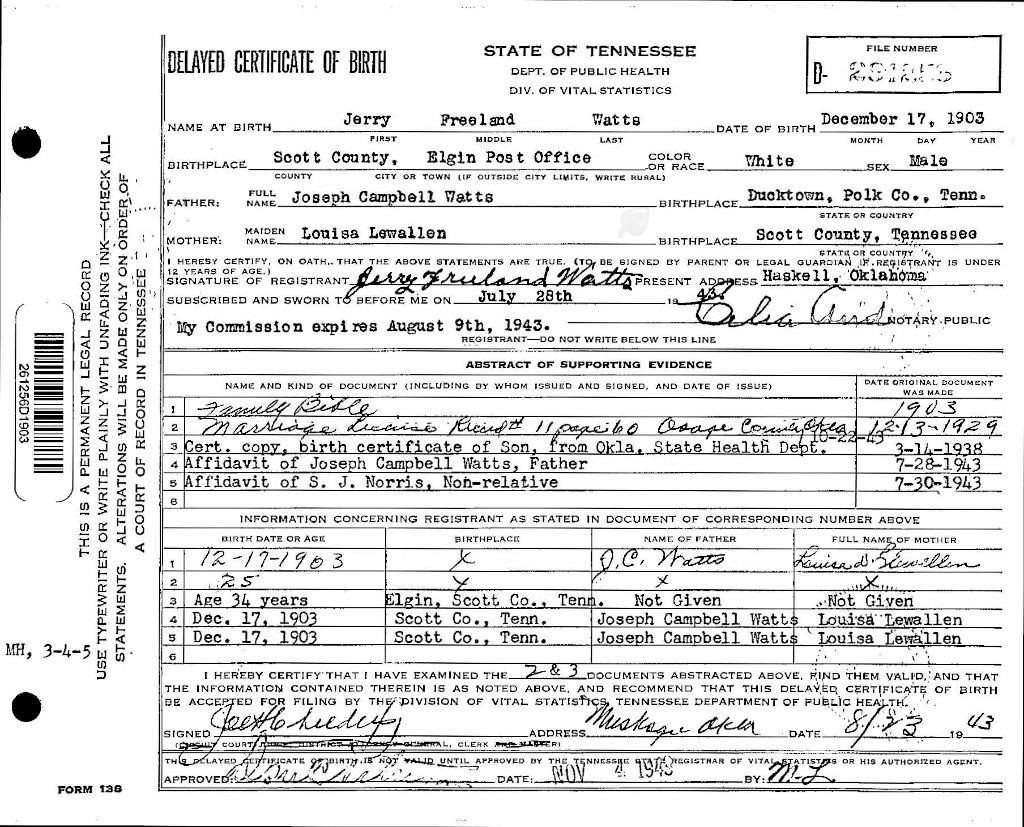 DELAYED CERTIFICATE OF BIRTH
STATE OF TENNESSEE
DEPT. OF PUBLIC HEALTH
DIV. OF VITAL STATISTICS
FILE NUMBER
D-
NAME AT BIRTH Jerry Freeland Watts DATE OF BIRTH December 17, 1903
FIRST MIDDLE LAST MONTH DAY YEAR
BIRTHPLACE Scott County, Elgin Post Office COLOR OR RACE White SEX Male
COUNTY CITY OR TOWN (IF OUTSIDE CITY LIMITS, WRITE RURAL)
FATHER: FULL NAME Joseph Campbell Watts BIRTHPLACE Ducktown, Polk Co., Tenn.
STATE OR COUNTRY
MOTHER: MAIDEN NAME Louisa Lewallen BIRTHPLACE Scott County, Tennessee
STATE OR COUNTRY
I HERESY CERTIFY, ON OATH, THAT THE ABOVE STATEMENTS ARE TRUE. (TO BE SIGNED BY PARENT OR LEGAL GUARDIAN IF REGISTRANT IS UNDER
12 YEARS OF AGE.)
SIGNATURE OF REGISTRANT Jerry Freeland Watts PRESENT ADDRESS Haskell, Oklahoma
SUBSCRIBED AND SWORN TO BEFORE ME ON July 28th 1943.
My Commission expires August 9th, 1943. Celia NOTARY PUBLIC
REGISTRANT—DO NOT WRITE BELOW THIS LINE
ABSTRACT OF SUPPORTING EVIDENCE
NAME AND KIND OF DOCUMENT (INCLUDING BY WHOM ISSUED AND SIGNED, AND DATE OF ISSUE) DATE ORIGINAL DOCUMENT WAS MADE
1 Family Bible 1903
2 Marriage License Record # 11 page 60 Osage County Okla 12-13-1929
3 Cert. copy, birth certificate of Son, from Okla. State Health Dept. 10-22-43 3-14-1938
4 Affidavit of Joseph Campbell Watts, Father 7-28-1943
5 Affidavit of S. J. Norris, Non-relative 7-30-1943
6
INFORMATION CONCERNING REGISTRANT AS STATED IN DOCUMENT OF CORRESPONDING NUMBER ABOVE
BIRTH DATE OR AGE BIRTHPLACE NAME OF FATHER FULL NAME OF MOTHER
1 12-17-1903 X J.C. Watts Louisa
2 25 X X X
3 Age 34 years Elgin, Scott Co., Tenn. Not Given Not Given
4 Dec. 17, 1903 Scott Co., Tenn. Joseph Campbell Watts Louisa Lewallen
5 Dec. 17, 1903 Scott Co., Tenn. Joseph Campbell Watts Louisa Lewallen
6
I HEREBY CERTIFY THAT I HAVE EXAMINED THE 2 & 3 DOCUMENTS ABSTRACTED ABOVE, FIND THEM VALID, AND THAT
THE INFORMATION CONTAINED THEREIN IS AS NOTED ABOVE, AND RECOMMEND THAT THIS DELAYED CERTIFICATE OF BIRTH
BE ACCEPTED FOR FILING BY THE DIVISION OF VITAL STATISTICS, TENNESSEE DEPARTMENT OF PUBLIC HEALTH.
SIGNED ADDRESS Muskogee Okla DATE 8/23 1943
THIS DELAYED CERTIFICATE OF BIRTH IS NOT VALID UNTIL APPROVED BY THE TENNESSEE STATE REGISTRAR OF VITAL STATISTICS OR HIS AUTHORIZED AGENT.
APPROVED: DATE: NOV 4 1943 BY: M-L
FORM 138
THIS IS A PERMANENT LEGAL RECORD
USE TYPEWRITER OR WRITE PLAINLY WITH UNFADING INK—CHECK ALL
STATEMENTS. ALTERATIONS WILL BE MADE ONLY ON ORDER OF
A COURT OF RECORD IN TENNESSEE
261256D1903
MH, 3-4-5